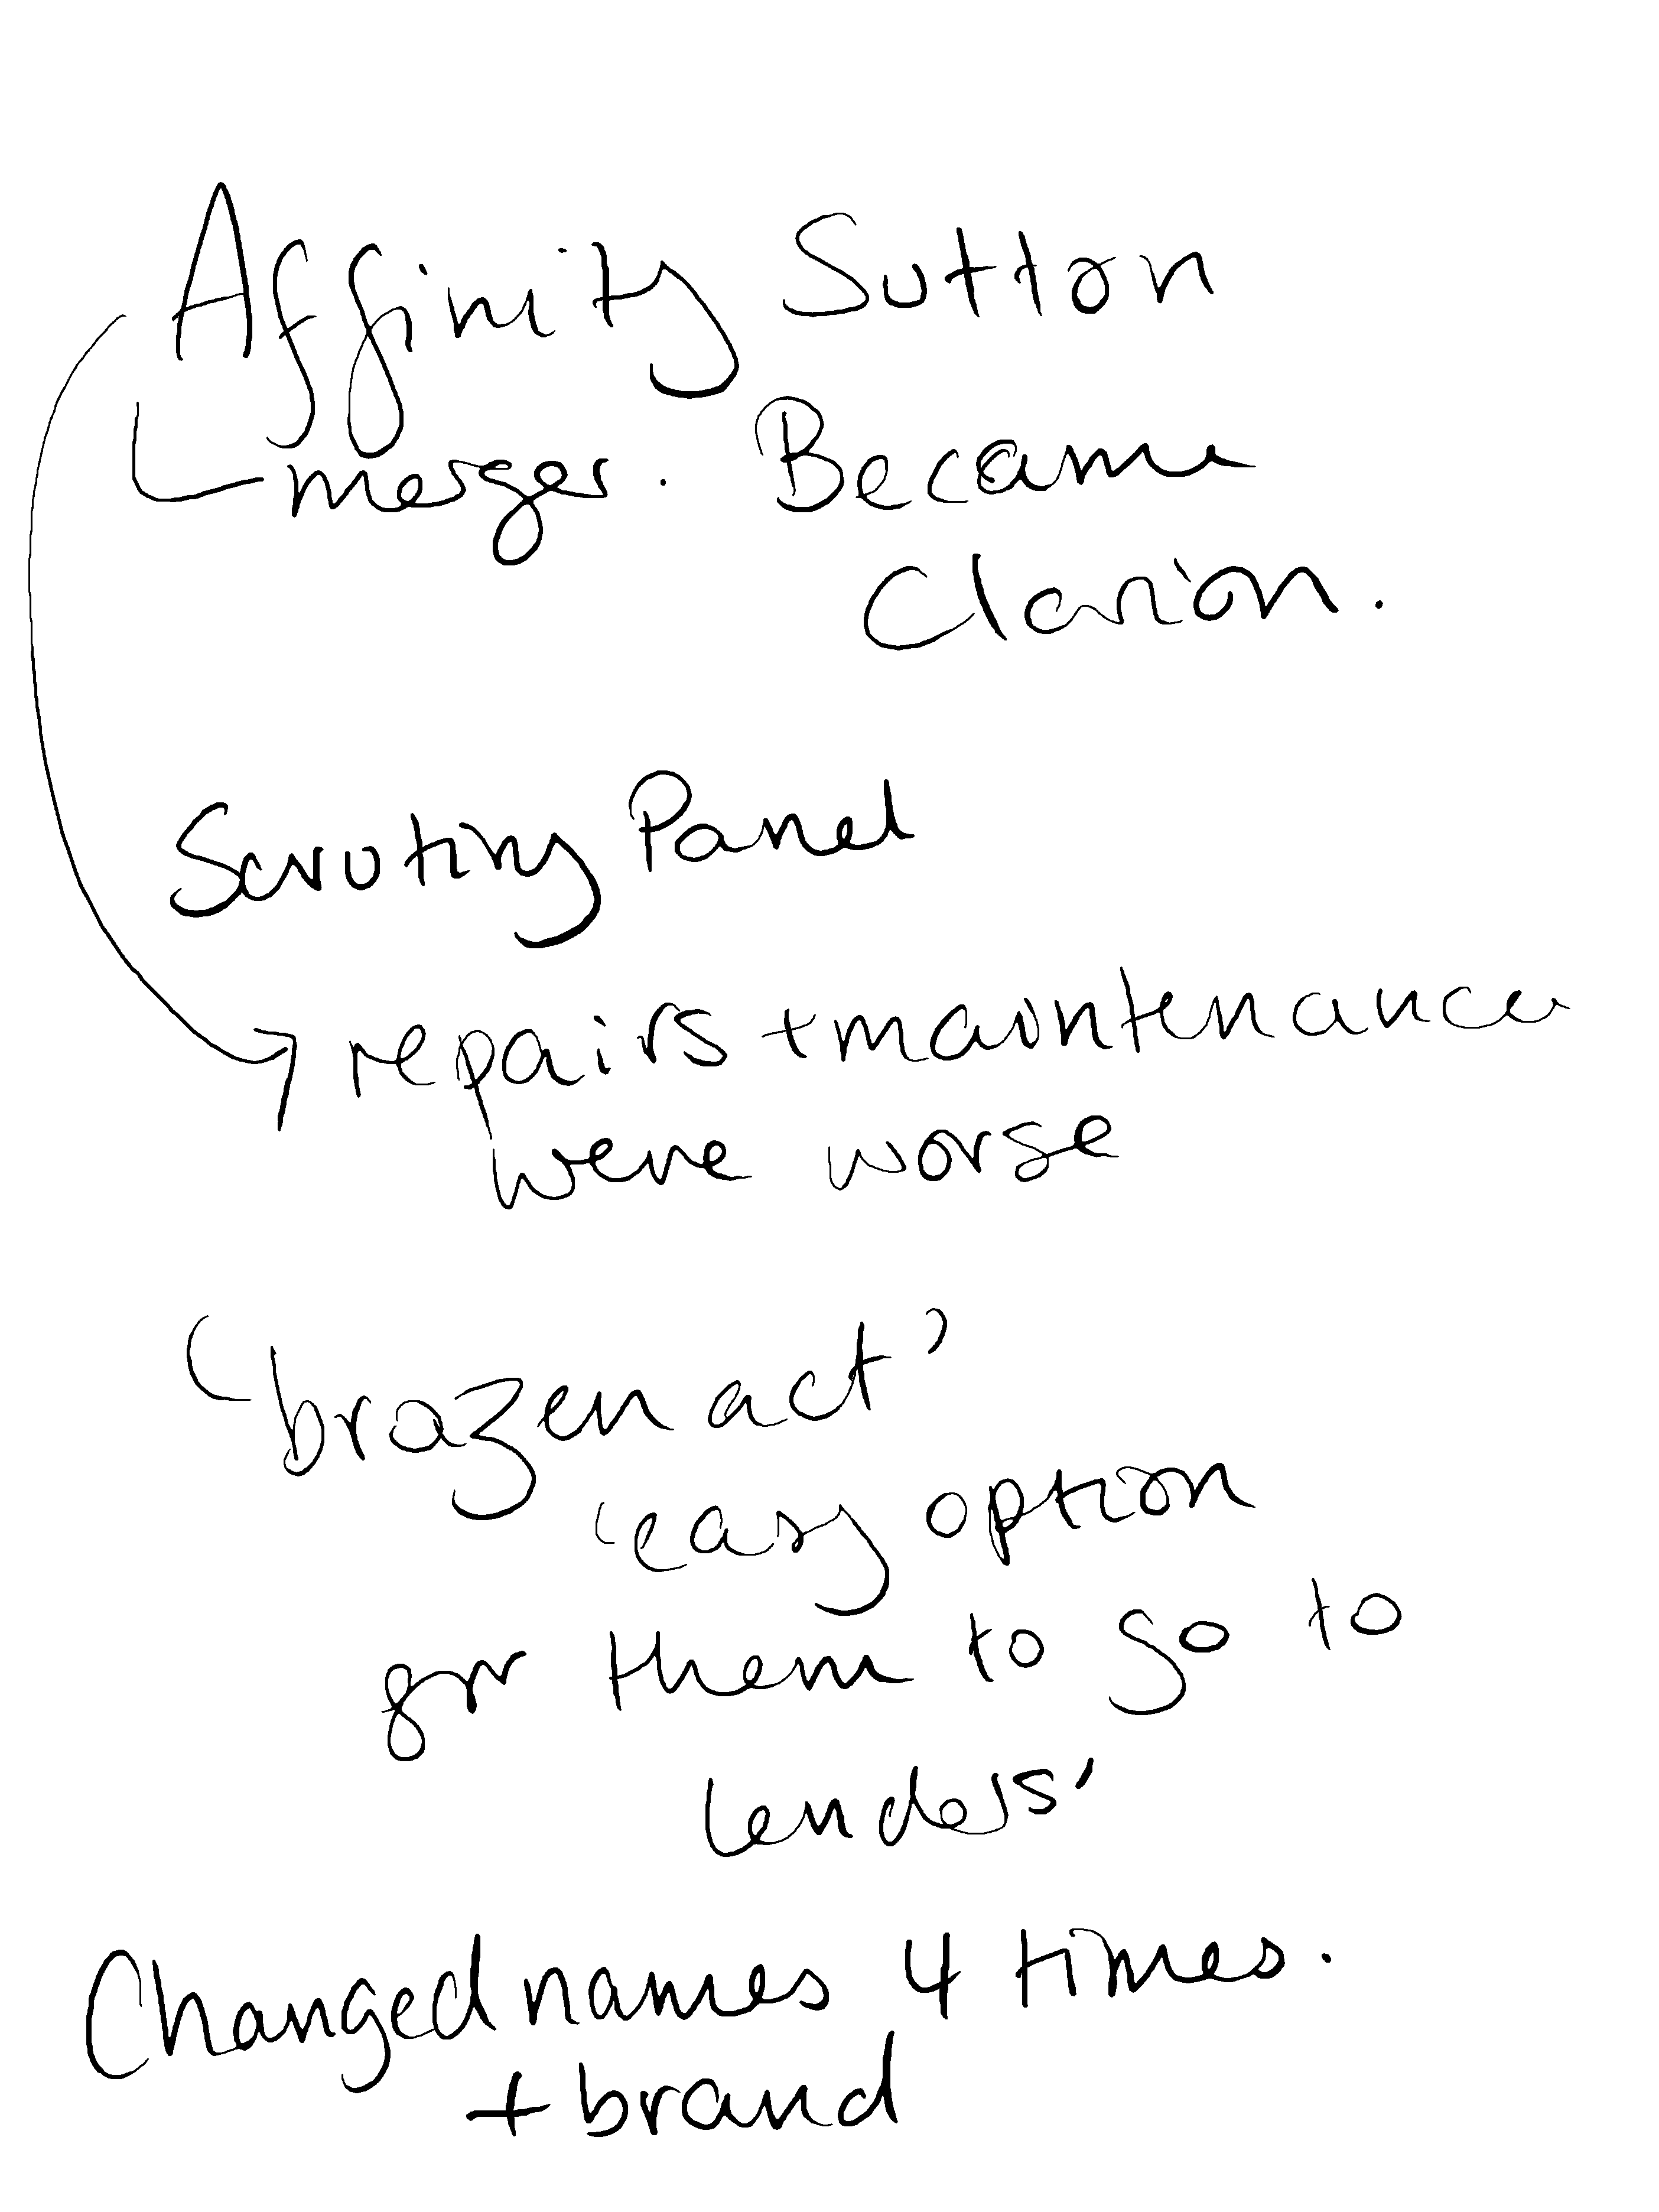 Affinity Sutton
merger. Became
Clarion.
Scrutiny Panel
repairs + maintenance
were worse
'brazen act'
'easy option
for them to go to
lenders'
Changed names 4 times.
+ brand